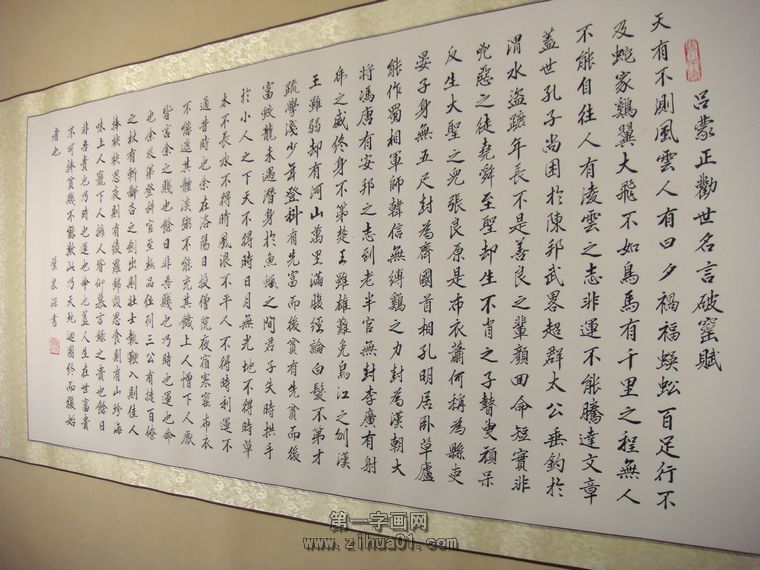 呂蒙正勸世名言破窰賦
天有不測風雲人有旦夕禍福蜈蚣百足行不
及蛇家鷄翼大飛不如鳥馬有千里之程無人
不能自往人有凌雲之志非運不能騰達文章
蓋世孔子尚困於陳邦武畧超群太公垂釣於
渭水盜蹠年長不是善良之輩顏回命短實非
兇惡之徒堯舜至聖却生不肖之子瞽叟頑呆
反生大聖之兒張良原是布衣蕭何稱為縣吏
晏子身無五尺封為齊國首相孔明居卧草廬
能作蜀相軍師韓信無縛鷄之力封為漢朝大
將馮唐有安邦之志到老半官無封李廣有射
虎之威終身不第楚王雖雄難免烏江之刎漢
王雖弱却有河山萬里滿腹經論白髮不第才
疏學淺少年登科有先富而後貧有先貧而後
富蛟龍未遇潛身於魚蠏之間君子失時拱手
於小人之下天不得時日月無光地不得時草
木不長水不得時風浪不平人不得時利運不
通昔時也余在洛陽日投僧院夜宿寒窰布衣
不能遮其體淡粥不能充其饑上人憎下人厭
皆言余之賤也餘曰非吾賤也乃時也運也命
也余及第登科官至極品位列三公有撻百僚
之杖有斬鄙吝之劍出則壯士執鞭入則佳人
捧袂思衣則有綾羅錦緞思食則有山珍海
味上人寵下人擁人皆仰慕言餘之貴也餘曰
非吾貴也乃時也運也命也蓋人生在世富貴
不可捧貧賤不能欺此乃天地迴圈終而復始
者也 葉書
第一字画网
www.zihua01.com